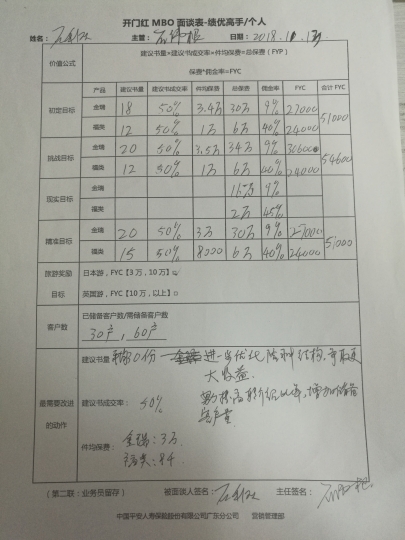 开门红 MBO 面谈表-绩优高手/个人
姓名： 主管： 日期：2018.11.
价值公式 建议书量×建议书成交率×件均保费=总保费（FYP）
保费*佣金率=FYC
产品 建议书量 建议书成交率 件均保费 总保费 佣金率 FYC 合计 FYC
初定目标 金瑞 18 50% 3.4万 30万 9% 27000 51000
福类 12 50% 1万 6万 40% 24000
挑战目标 金瑞 20 50% 3.5万 34万 9% 30600 54600
福类 12 50% 1万 6万 40% 24000
现实目标 金瑞 9%
福类 2万 45%
精准目标 金瑞 20 50% 3万 30万 9% 27000 51000
福类 15 50% 8000 6万 40% 24000
旅游奖励 日本游，FYC【3万，10万】
目标 英国游，FYC【10万，以上】
客户数 已储备客户数/需储备客户数
30户，60户
最需要改进的动作
建议书量 30份 进一步优化 结构，争取更
大收益
建议书成交率：50%
件均保费：
金瑞：3万
（第二联：业务员留存） 被面谈人签名： 主任签名：
中国平安人寿保险股份有限公司广东分公司 营销管理部